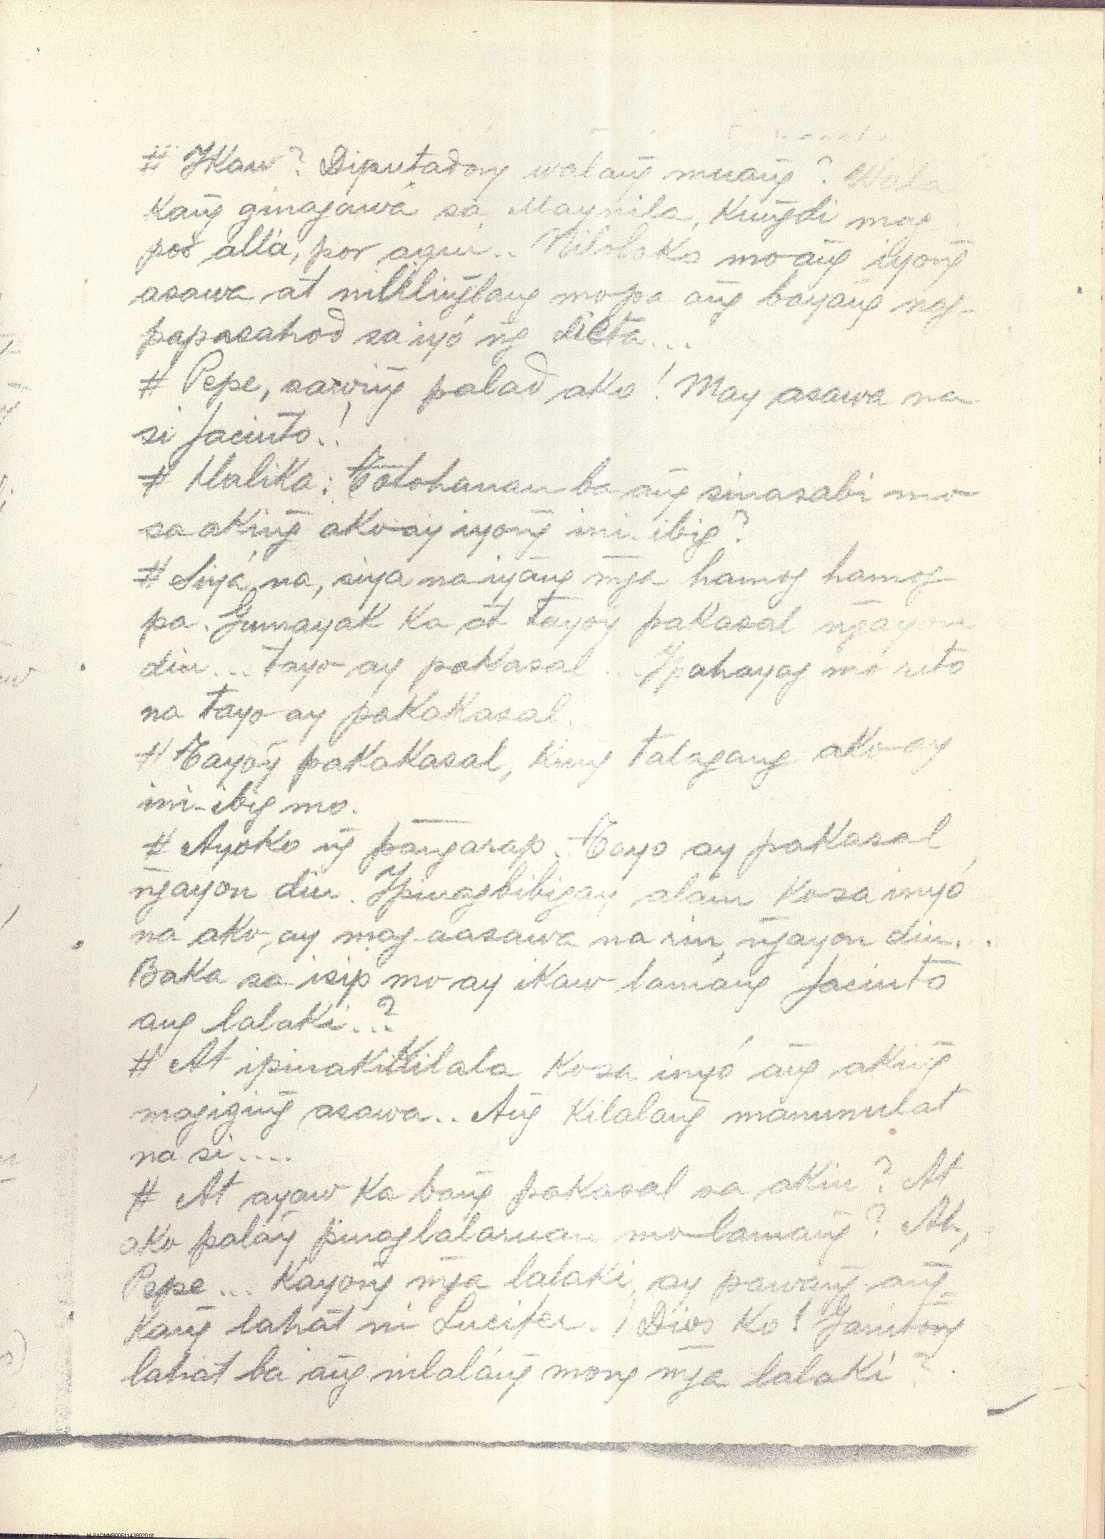 # Ikaw? Diputadong walang muang? Wala
kang̃ ginagawa sa Maynila, kung̃di mag
por allá, por aqui.. Niloloko mo ang̃ iyong̃
asawa at nililing̃lang mo pa ang̃ bayang̃ nag-
papasahod sa iyó ng̃ dieta...
# Pepe, sawing̃ palad ako! May asawa na
si Jacinto..!
# Malika: Totohanan ba ang̃ sinasabi mo
sa aking̃ ako ay iyong̃ ini-ibig?
# Siyá na, siya na iyang mg̃a hamog hamog
pa. Gumayak ka at tayo'y pakasal ng̃ayon
din... Tayo ay pakasal... Ipahayag mo rito
na tayo ay pakakasal.
# Tayo'y pakakasal, kung talagang ako ay
ini-ibig mo.
# Ayoko ng̃ pang̃arap. Tayo ay pakasal
ng̃ayon din. Ipinagbibigay alam ko sa inyó
na ako, ay mag-aasawa na rin, ng̃ayon din...
Baka sa isip mo ay ikaw lamáng Jacinto
ang lalaki...?
# At ipinakikilala ko sa inyó ang̃ aking̃
magiging̃ asawa.. Ang̃ kilalang̃ manunulat
na si....
# At ayaw ka bang̃ pakasal sa akin? At
ako palá'y pinaglalaruan mo lamang̃? Ah,
Pepe... Kayong̃ mg̃a lalaki, ay pawang̃ ang̃-
kang̃ lahat ni Lucifer. ¡Dios ko! Ganitong̃
lahat ba ang̃ nilaláng̃ mong mg̃a lalaki?